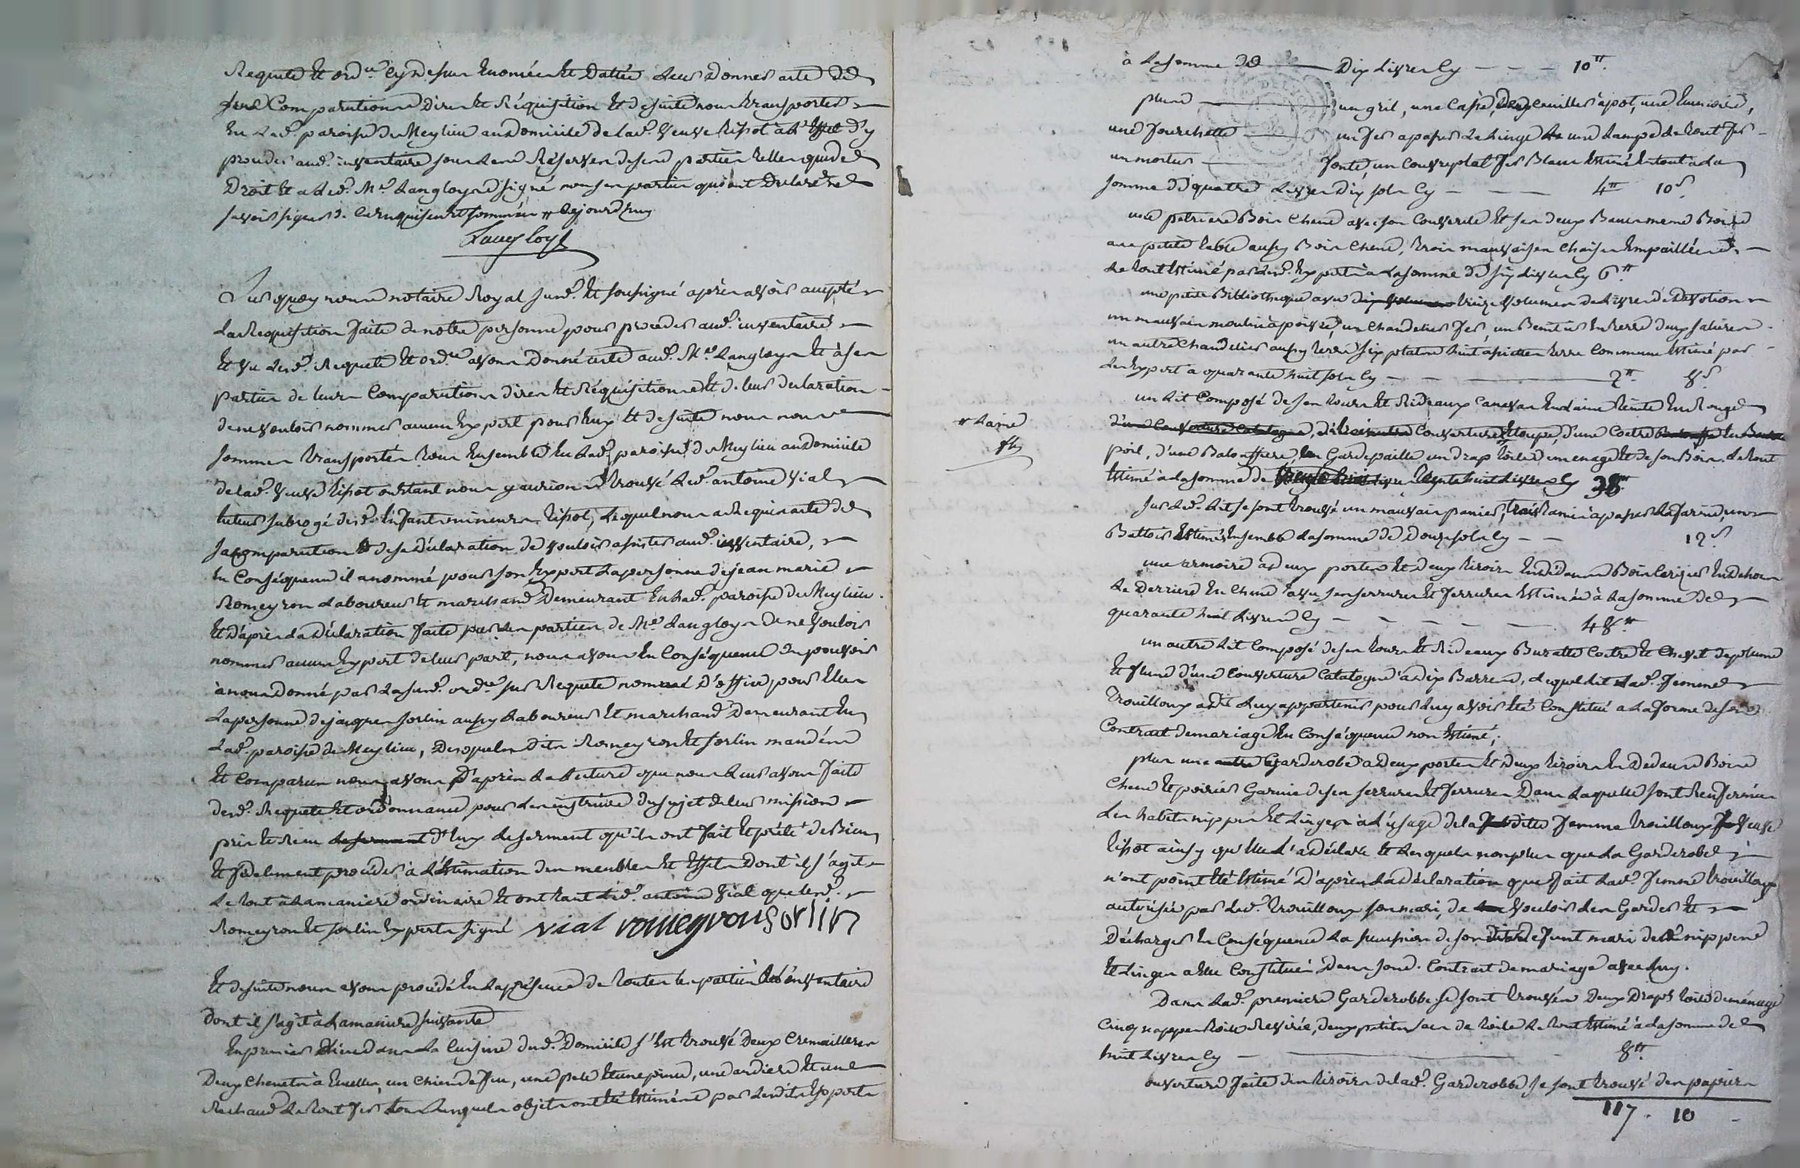 Requete et ord.ce cy dessus enoncée et dattée leur donner acte de
leurs Comparution Dire et Réquisition et de suite nous transporter
en lad. paroisse de Meylieu au domicile de lad. veuve Ripot à l'effet d'y
proceder aud. inventaire sous les Réserves desd. parties telles que de
Droit et a led. Me Langloys signé non ses parties qui ont declaré ne
savoir signer de ce enquises et sommées
Langloys
Sur quoy nous notaire Royal susd. et soussigné après avoir accepté
la Requisition faite de notre personne pour proceder aud. inventaire
et vu lesd. Requete et ord.ce avons donné acte aud. Me Langloys et à ses
parties de leurs Comparution dires et Réquisitions et de leur declaration
de ne vouloir nommer aucun Expert pour eux et de suite nous nous
sommes transportés tous Ensemble en lad. paroisse de Meylieu au domicile
de lad. veuve Ripot ou étant nous y aurions trouvé led. antoine vial
tuteur subrogé desd. Enfants mineurs Ripot, lequel nous a Requis acte de
sa comparution & de sa déclaration de vouloir assister aud. inventaire,
En Conséquence il a nommé pour son Expert la personne de jean marie
Romeyron Laboureur et marchand Demeurant en lad. paroisse de Meylieu.
Et d'après la déclaration faite par les parties de Me Langloys de ne vouloir
nommer aucun Expert de leur part, nous avons en Conséquence du pouvoir
à nous donné par la susd. ord.ce sur Requete nommé D'office pour elles
la personne de jacques sorlin aussy Laboureur et marchand Demeurant en
lad. paroisse de Meylieu, Desquels dits Romeyron et sorlin mandés
et Comparus nous avons d'après la lecture que nous leurs avons faite
desd. Requete et ordonnance pour les instruire du sujet de leur mission
pris et Reçu le serment d'eux le serment qu'ils ont fait et prété de Bien
et fidelement proceder à l'Estimation des meubles et Effets Dont il s'agit
le tout à la maniere ordinaire et ont tant led. antoine vial que lesd.
Romeyron et sorlin Experts signé vial romeyron sorlin
Et de suite nous avons procedé En la présence de toutes les parties à l'inventaire
Dont il s'agit à la maniere suivante
En premier Lieu dans la Cuisine dud. Domicile s'est trouvé Deux Cremailleres
Deux Chenets un chien de feu, une pele et une pince, une andiere et une
Rechaud le tout fer tous lesquels objets ont été Estimés par lesdits Experts
à la somme de Dix Livres Cy - - - 10 tt
plus un gril, une casse, Deux Cuilliers à pot, une Ecumoire,
une fourchette un fer a passer le Linge une Lampe le tout fer
un mortier fonte, un Couvreplat fer Blanc Estimé le tout à la
somme de quatre Livres Dix sols Cy - - 4 tt 10 s
une petriere Bois Chene avec son Couvercle et ses deux Bancs meme Bois
une petite table aussy Bois Chene, trois mauvaises Chaises Empaillées
le tout Estimé par lesd. Experts à la somme de six Livres Cy 6 tt
une petite Bibliotheque avec dix volumes treize volumes de Livres de Devotion
un mauvais moulin à poivre, un chandelier fer, un Benitier En terre deux salieres
un autre Chandelier aussy terre six plats huit assiettes terre Commune Estimé par
les Experts a quarante huit sols Cy - - 2 tt 8 s
un Lit Composé de son tour et Rideaux Canevas Laine teinte En Rouge
* Laine
d'une Couverture Catalogne, d'une autre Couverture Etoupe, d'une Coetre
poil, d'une Balouffiere, un Gardepaille un drap toile de menage et de son Bois. le tout
Estimé à la somme de trente huit Livres Cy 38 tt
Sur led. Lit se sont trouvé un mauvais panier, trois tamis à passer la farine, un
Battoir Estimés Ensemble la somme de Douze sols Cy - - 12 s
une armoire à deux portes et deux tiroirs En dedans Bois Cerizier En dehors
le Derriere En Chene avec ses serrures et ferrures Estimée à la somme de
quarante huit Livres Cy - - - - - 48 tt
un autre Lit Composé de son tour et Rideaux Buratte Coetre et Chevet de plume
et d'une Couverture Catalogne à dix Barres, Lequel Lit lad. femme
Trouilloux a dit Luy appartenir pour Luy avoir été Constitué a la forme de son
Contrat de mariage En Conséquence non Estimé;
plus une autre Garderobe à Deux portes et Deux tiroirs En Dedans Bois
Chene et poirier Garnie de ses serrures et ferrures Dans Laquelle sont Renfermés
les habits nippes et Linges à l'usage de la ditte femme Trouilloux veuve
Ripot ainsy qu'elle l'a déclaré et Lesquels non plus que la Garderobe
n'ont point été Estimé D'après la déclaration que fait lad. femme Trouilloux
autorisée par led. Trouilloux son mari, de vouloir les Garder et
Décharger En Conséquence la succession de son défunt mari des nippes
et Linges a elle Constitués Dans sond. Contrat de mariage avec Luy.
Dans lad. premiere Garderobbe se sont trouvés Deux Draps toile de ménage
Cinq nappes toile deux petits sacs de toile le tout Estimé à la somme de
huit Livres Cy - - 8 tt
ouverture faite des tiroirs de lad. Garderobbe se sont trouvé des papiers
117 . 10